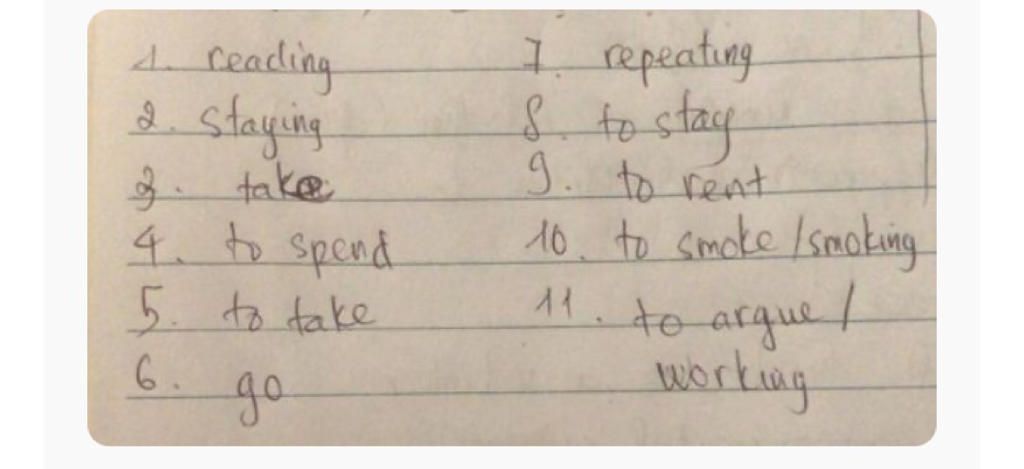 1. reading
2. staying
3. take
4. to spend
5. to take
6. go
7. repeating
8. to stay
9. to rent
10. to smoke / smoking
11. to argue /
working